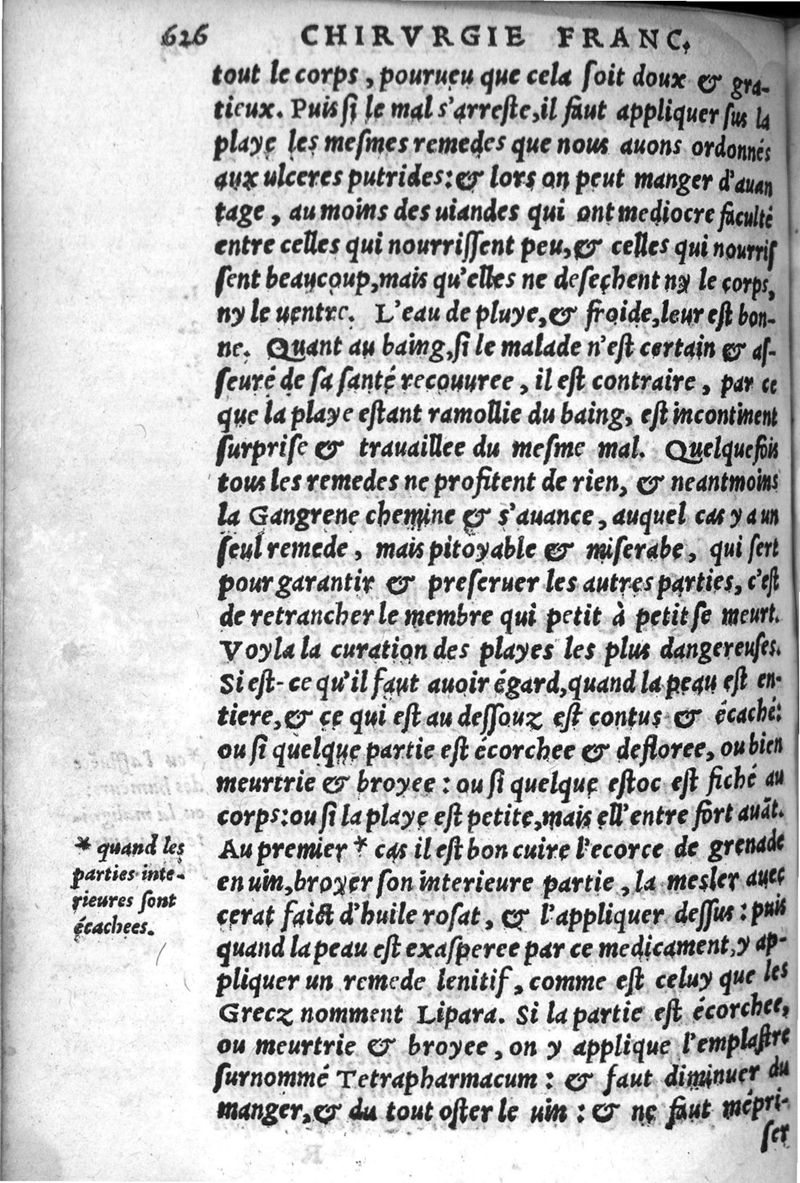 626 CHIRVRGIE FRANC.
tout le corps, pourueu que cela ſoit doux & gra-
tieux. Puis ſi le mal s'arreſte, il faut appliquer ſus la
playe les meſmes remedes que nous auons ordonnés
aux ulceres putrides: & lors on peut manger d'auan
tage, au moins des uiandes qui ont mediocre faculté
entre celles qui nourriſſent peu, & celles qui nourriſ
ſent beaucoup, mais qu'elles ne deſeçhent ny le corps,
ny le uentre. L'eau de pluye, & froide, leur eſt bon-
ne. Quant au baing, ſi le malade n'eſt certain & aſ-
ſeuré de ſa ſanté recouuree, il eſt contraire, par ce
que la playe eſtant ramollie du baing, eſt incontinent
ſurpriſe & trauaillee du meſme mal. Quelquefois
tous les remedes ne profitent de rien, & neantmoins
la Gangrene chemine & s'auance, auquel cas y a un
ſeul remede, mais pitoyable & miſerabe, qui ſert
pour garantir & preſeruer les autres parties, c'eſt
de retrancher le membre qui petit à petit ſe meurt.
Voyla la curation des playes les plus dangereuſes.
Si eſt-ce qu'il faut auoir égard, quand la peau eſt en-
tiere, & ce qui eſt au deſſouz eſt contus & écaché:
ou ſi quelque partie eſt écorchee & defloree, ou bien
meurtrie & broyee: ou ſi quelque eſtoc eſt fiché au
corps: ou ſi la playe eſt petite, mais ell'entre fort auãt.
Au premier * cas il eſt bon cuire l'ecorce de grenade
en uin, broyer ſon interieure partie, la mesler auec
cerat faict d'huile roſat, & l'appliquer deſſus: puis
quand la peau eſt exaſperee par ce medicament, y ap-
pliquer un remede lenitif, comme eſt celuy que les
Grecz nomment Lipara. Si la partie eſt écorchee,
ou meurtrie & broyee, on y applique l'emplaſtre
ſurnommé Tetrapharmacum: & faut diminuer du
manger, & du tout oſter le uin: & ne faut mépri-
ſer
* quand les
parties inte-
rieures ſont
écachees.